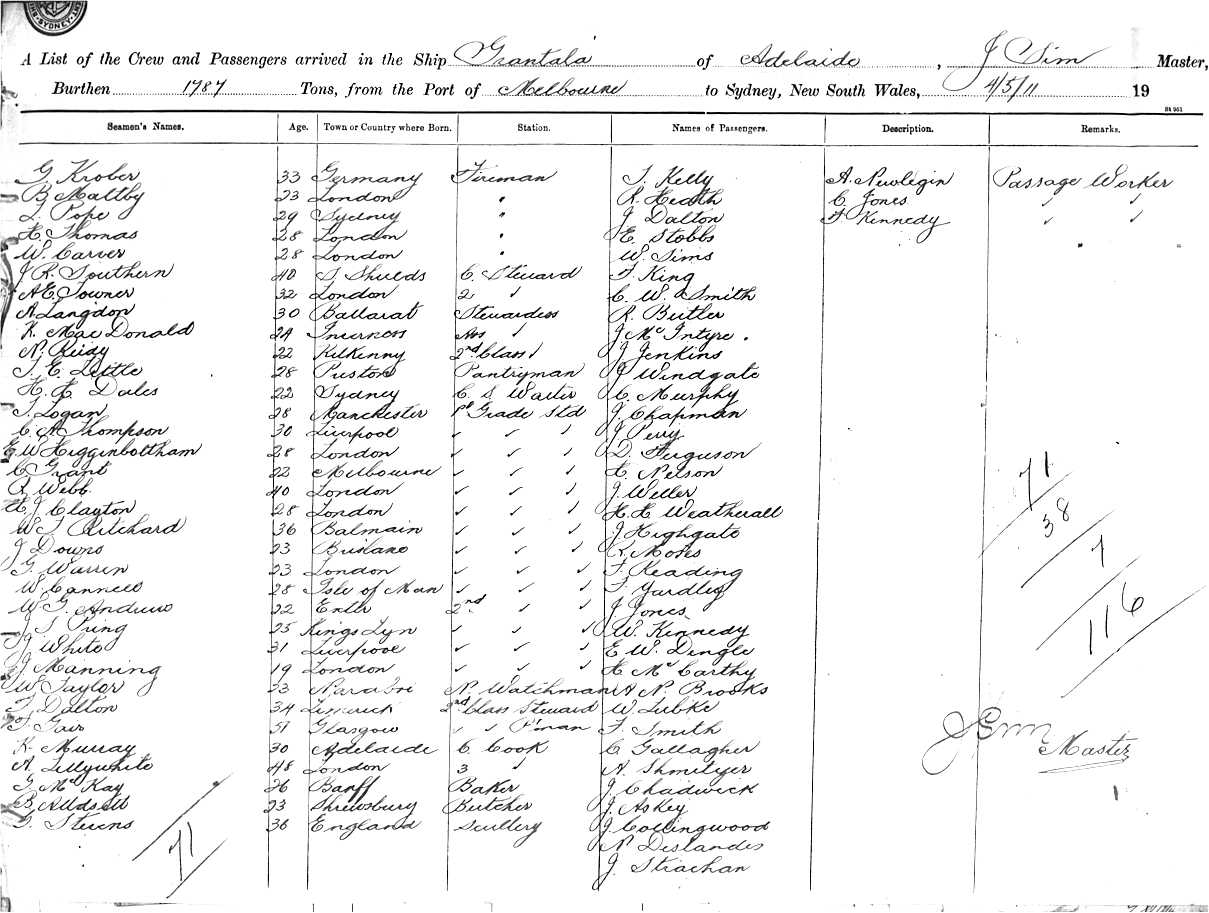 SYDNEY
A List of the Crew and Passengers arrived in the Ship Grantala of Adelaide, J Sim Master,
Burthen 1787 Tons, from the Port of Melbourne to Sydney, New South Wales, 4/5/11 19
Seamen's Names. Age. Town or Country where Born. Station. Names of Passengers. Description. Remarks.
G. Krober 33 Germany Fireman T. Kelly A. Newlegin Passage Worker
B. Maltby 23 London " R. Heath C. Jones ✓ ✓
T. Pope 29 Sydney " J Dalton F Kennedy ✓ ✓
H. Thomas 28 London " E. Stobbs " "
W. Carver 28 London " W. Sims
J R. Southern 40 S Shields C. Steward F. King
A E. Towner 32 London 2 ✓ C. W. Smith
A Langdon 30 Ballarat Stewardess R. Butler
K. Mac Donald 24 Inverness Ass ✓ J Mc Intyre.
N. Reidy 22 Kilkenny 2nd Class ✓ J Jenkins
T. E. Little 28 Preston Pantryman J Windgate
H. E Dales 22 Sydney C. S Waiter C. Murphy
T. Logan 28 Manchester 1st Grade Std J. Chapman
C A Thompson 30 Liverpool ✓ ✓ ✓ J Perry
E W Higginbottham 28 London ✓ ✓ ✓ D. Ferguson
C Grant 22 Melbourne ✓ ✓ ✓ H. Nelson
A. Webb. 40 London ✓ ✓ ✓ J. Weller
H. J Clayton 28 London ✓ ✓ ✓ H. H Weatherall
W. T Pritchard 36 Balmain ✓ ✓ ✓ J Highgate
J Downs 23 Brisbane ✓ ✓ ✓ R. Moses
G. Warren 23 London ✓ ✓ ✓ F. Reading
W. Cannell 28 Isle of Man ✓ ✓ ✓ F. Yardley
W. G. Andrew 22 2nd ✓ ✓ J Jones
J. S. Pring 25 Kings Lyn ✓ ✓ ✓ W. Kennedy
J White 31 Liverpool ✓ ✓ ✓ E W. Dingle
J Manning 19 London ✓ ✓ ✓ H Mc Carthy
W Taylor 23 N. Watchman A N. Brooks
T. Dalton 34 Limerick 2nd Class Steward W. Lubke
F. 31 Glasgow ✓ ✓ P'man F. Smith
K. Murray 30 Adelaide C. Cook C Gallagher
A. Lillywhite 48 London 3 ✓ A.
G Mc Kay 26 Banff Baker J. Chadwick
B. 23 Shrewsbury Butcher J. Askey
36 England Scullery J Collingwood
N Deslandes
J. Strachan
71
71
38
7
116
J Sim
Master